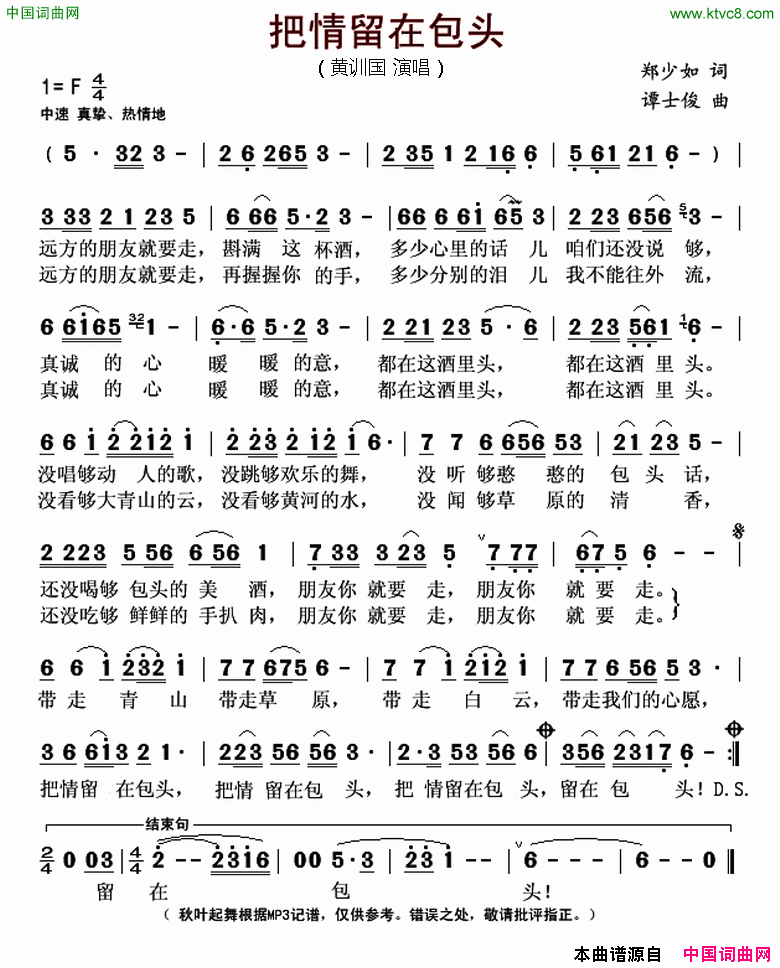 中国词曲网
www.ktvc8.com
把情留在包头
（黄训国 演唱）
郑少如 词
谭士俊 曲
1= F 4/4
中速 真挚、热情地
( 5 · 32 3 - | 2 6 265 3 - | 2 35 1 2 16 6 | 5 61 21 6 - ) |
3 33 2 1 23 5 | 6 66 5·2 3 - | 66 66 6i 65 3 | 2 23 656 5 3 - |
远方的朋友就要走，斟满 这 杯酒，多少心里的话 儿 咱们还没说 够，
远方的朋友就要走，再握握你 的手，多少分别的泪 儿 我不能往外 流，
6 6i65 32 1 - | 6·6 5·2 3 - | 2 21 23 5 · 6 | 2 23 561 1 6 - |
真诚 的 心 暖 暖 的意，都在这酒里头，都在这酒 里 头。
真诚 的 心 暖 暖 的意，都在这酒里头，都在这酒 里 头。
6 6 i 2 2i2 i | 2·23 2 i2 i 6· | 7 7 6 656 53 | 21 23 5 - |
没唱够动 人的歌，没跳够欢乐的舞，没 听 够憨 憨的 包 头 话，
没看够大青山的云，没看够黄河的水，没 闻 够草 原的 清 香，
2 223 5 56 656 1 | 7 33 3 23 5 | 7 77 7 | 67 5 6 - - |
还没喝够 包头的 美 酒，朋友你 就要 走，朋友你 就 要 走。
还没吃够 鲜鲜的 手扒 肉，朋友你 就要 走，朋友你 就 要 走。
6 6 i 232 i | 7 7 675 6 | 7 7 2 2i2 i | 7 7 6 56 5 3 · |
带 走 青 山 带走草 原，带 走 白 云，带走我们的心愿，
3 6 6i3 2 1· | 223 56 56 3 | 2·3 53 56 6 | 356 2317 6 - :||
把情留 在包头，把情 留在包 头，把 情留 在包头，留在 包 头！D.S.
结束句
2/4 0 03 | 4/4 2 - - 2316 | 00 5·3 | 23 i - - | 6 - - - | 6 - - 0 ||
留 在 包 头！
（ 秋叶起舞根据MP3记谱，仅供参考。错误之处，敬请批评指正。）
本曲谱源自 中国词曲网